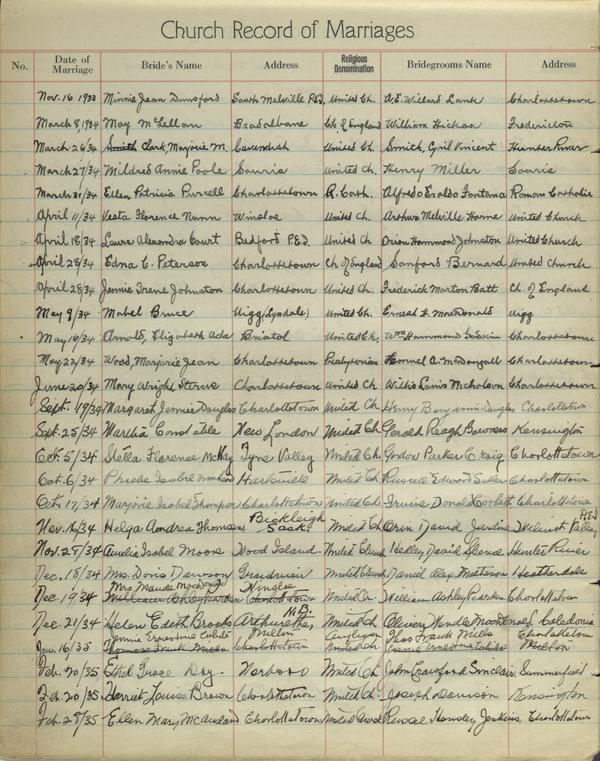 Church Record of Marriages
No. Date of Marriage Bride's Name Address Religious Denomination Bridegrooms Name Address
Nov. 16 1933 Minnie Jean Dunsford South Melville P.E.I. United Ch. Willard Lank Charlottetown
March 8, 1934 May McLellan Bradalbane Ch. of England William Hickox Fredericton
March 26/34 Smith Clark, Marjorie M. Cavendish United Ch. Smith, Cyril Vincent Hunter River
March 27/34 Mildred Annie Poole Souris United Ch. Henry Miller Souris
March 31/34 Ellen Patricia Purcell Charlottetown R. Cath. Alfredo Eraldo Fontana Roman Catholic
April 11/34 Vesta Florence Nunn Winsloe United Ch. Arthur Melville Horne United Church
April 18/34 Laura Alexandra Court Bedford P.E.I. United Ch Orion Hammond Johnston United Church
April 28/34 Edna C. Peterson Charlottetown Ch of England Sanford Bernard United Church
April 28/34 Jennie Irene Johnston Charlottetown United Ch. Frederick Morton Batt Ch. of England
May 9/34 Mabel Bruce Uigg (Lyndale) United Ch. Ernest F. MacDonald Uigg
May 16/34 Arnold, Elizabeth Ada Bristol United Ch. Wm Hammond Charlottetown
May 22/34 Wood, Marjorie Jean Charlottetown Presbyterian Lemuel A. McDougall Charlottetown
June 20/34 Mary Wright Charlottetown United Ch Willis Nicholson Charlottetown
Sept. 19/34 Margaret Jennie Douglas Charlottetown United Ch Henry Benjamin Douglas Charlottetown
Sept. 25/34 Martha Constable New London United Ch. Gerald Reagh Kensington
Oct 5/34 Stella Florence McKay Tyne Valley United Ch. Gordon Parker Craig Charlottetown
Oct. 6/34 Isabel United Ch Russell Edward Charlottetown
Oct 17/34 Marjorie Isabel Thompson Charlottetown United Ch. Irvine Donald Corbett Charlottetown
Nov. 16/34 Helga Andrea Thomsen Bickleigh Sask. United Ch. Orin David Jardine Walnut Valley P.E.I
Nov. 28/34 Amelia Isabel Moore Wood Island United Church Hedley David Hunter River
Dec. 18/34 Mrs. Doris Dawson United Church Daniel Alex. Matheson Heatherdale
Mrs Maude Winsloe
Dec 19/34 William Ashley Charlottetown United Ch William Ashley Charlottetown
Dec. 21/34 Helen Edith Brooks Arthurette, N.B. United Ch Oliver New Caledonia
Jennie Ernestine Milton Anglican Thos Frank Mills Charlottetown
Jan. 16/35 Thomas Frank Mills Charlottetown United Ch. Jennie Ernestine Milton
Feb. 20/35 Ethel Grace Dry United Ch John Crawford Sinclair Summerfield
Feb. 20/35 Harriet Louise Brown Charlottetown United Ch. Joseph Davison Kensington
Feb. 28/35 Ellen Mary Charlottetown United Church Hensley Jenkins Charlottetown